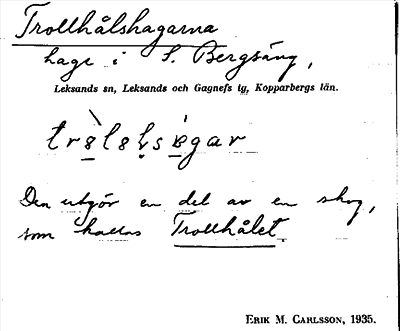 Trollhålshagarna
hage i S. Bergsäng,
Leksands sn, Leksands och Gagnefs tg, Kopparbergs län.
Den utgör en del av en skog,
som kallas Trollhålet
ERIK M. CARLSSON, 1935.